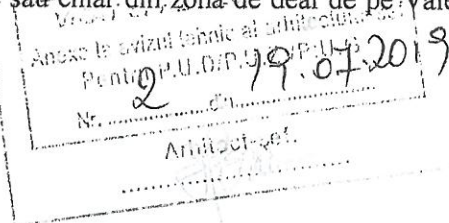 sau chiar din zona de deal de pe Vale
Anexă la avizul tehnic al arhitectului șef
Pentru P.U.D/P.U.Z/P.U.G
Nr. 2 din 19.07.2019
Arhitect-șef,